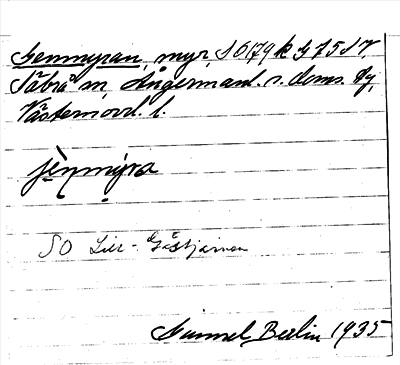 Gemmyran, myr, S 6179 k G 7517,
Säbrå sn, Ångermanl. s. doms. dy,
Västernorrl. l.
jènmýra
SO Lill-Gåstjärnen
Gunnel Berlin 1935